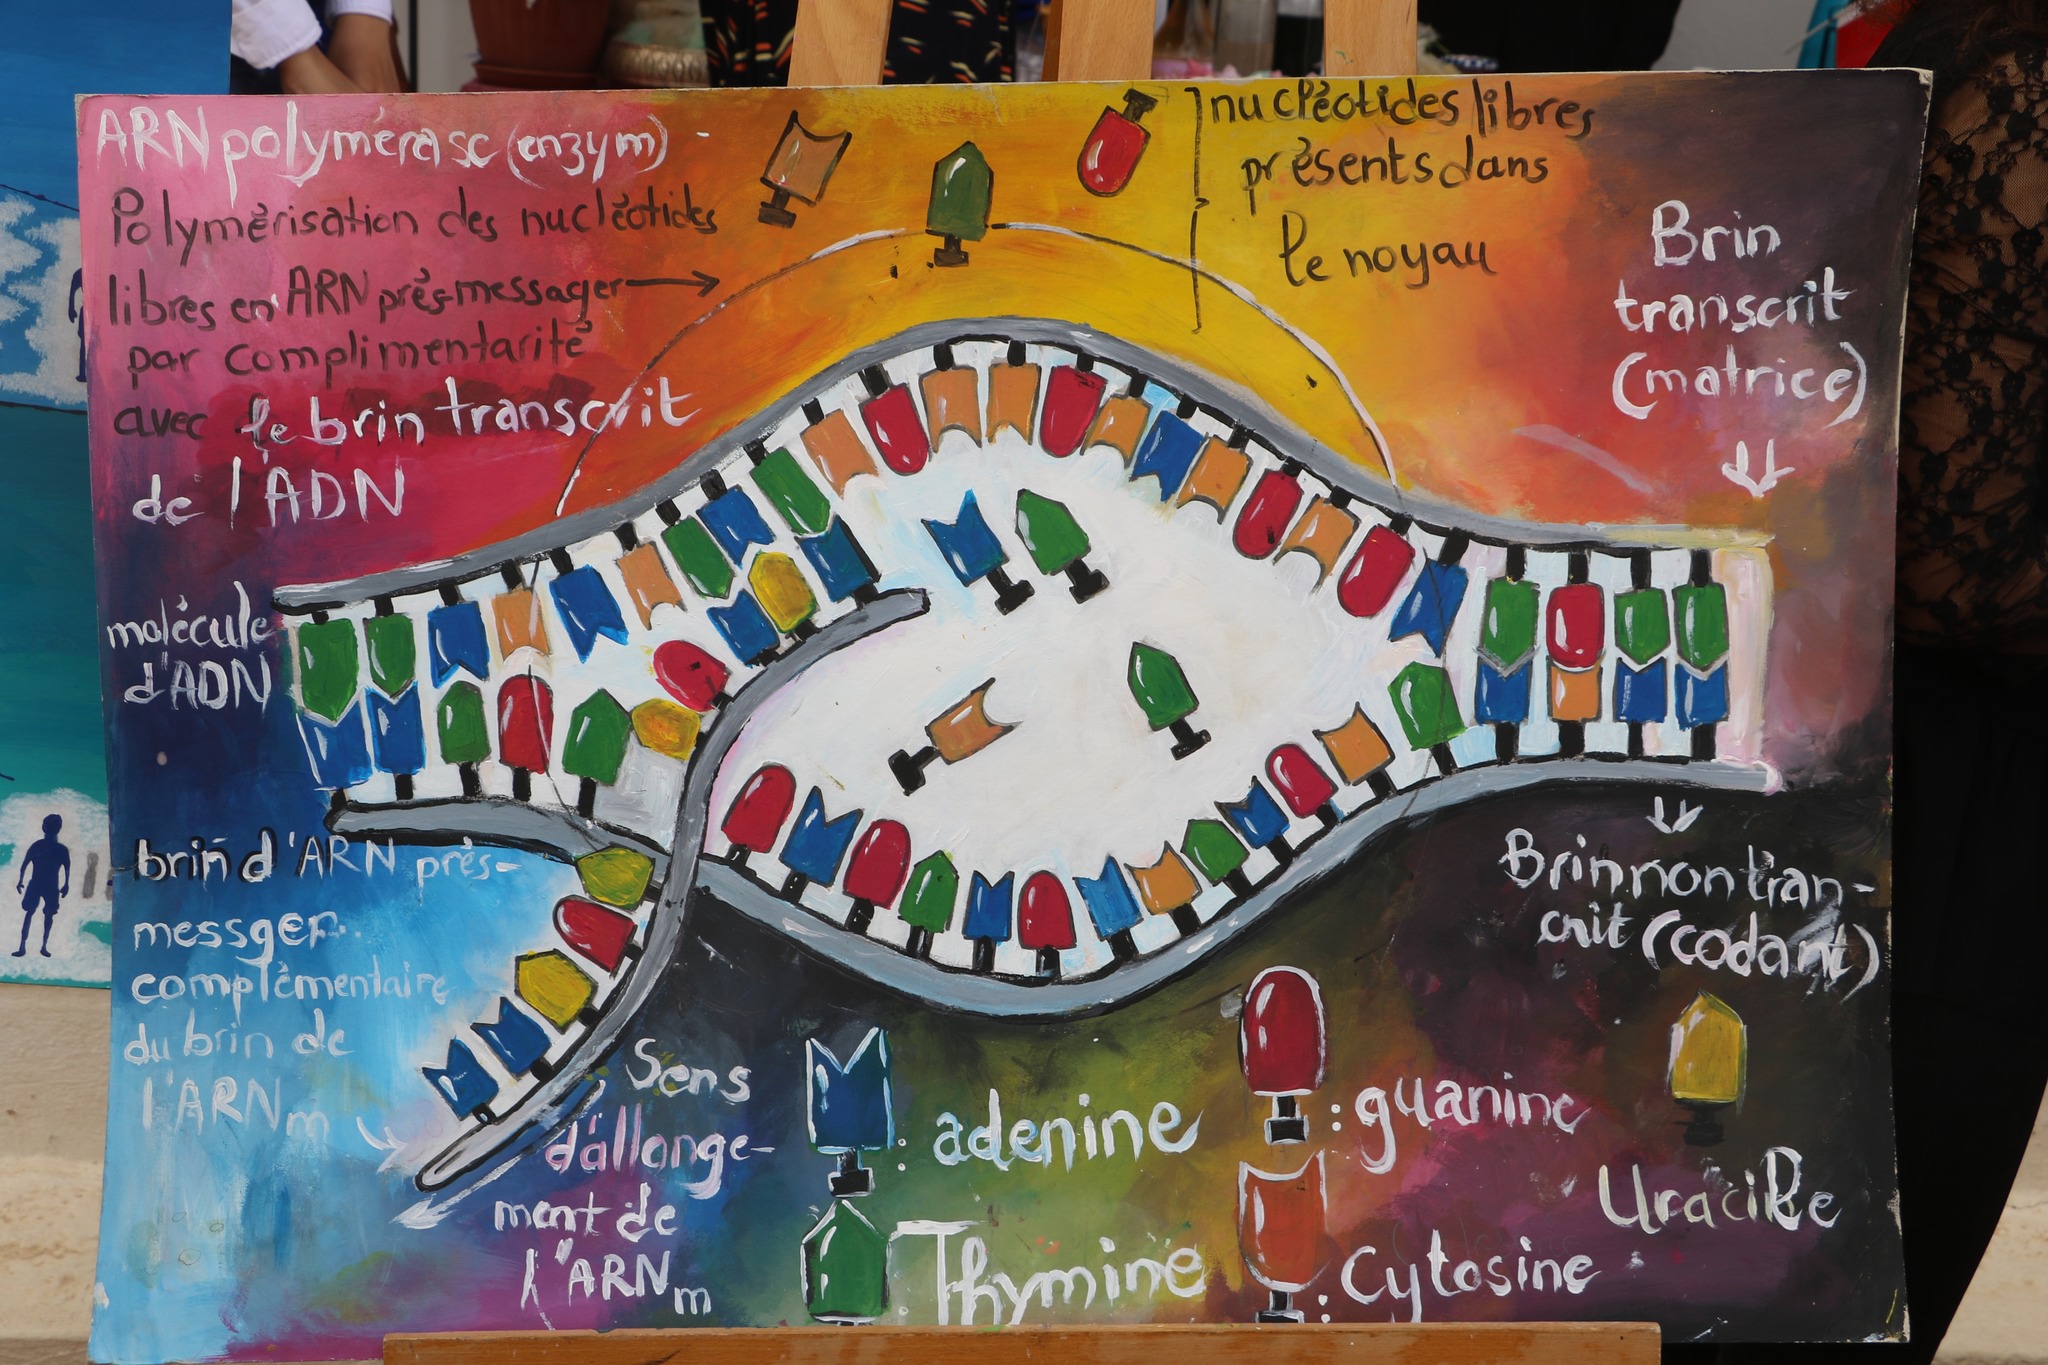 ARN polymérase (enzym)
Polymérisation des nucléotides
libres en ARN prés-messager
par complimentarité
avec le brin transcrit
de l'ADN
nucléotides libres
présents dans
le noyau
Brin
transcrit
(matrice)
molécule
d'ADN
brin d'ARN prés-
messger
complémentaire
du brin de
l'ARNm
Sens
d'allonge-
ment de
l'ARNm
Brin non tran-
crit (codant)
: adenine
: Thymine
: guanine
: Cytosine
Uracile